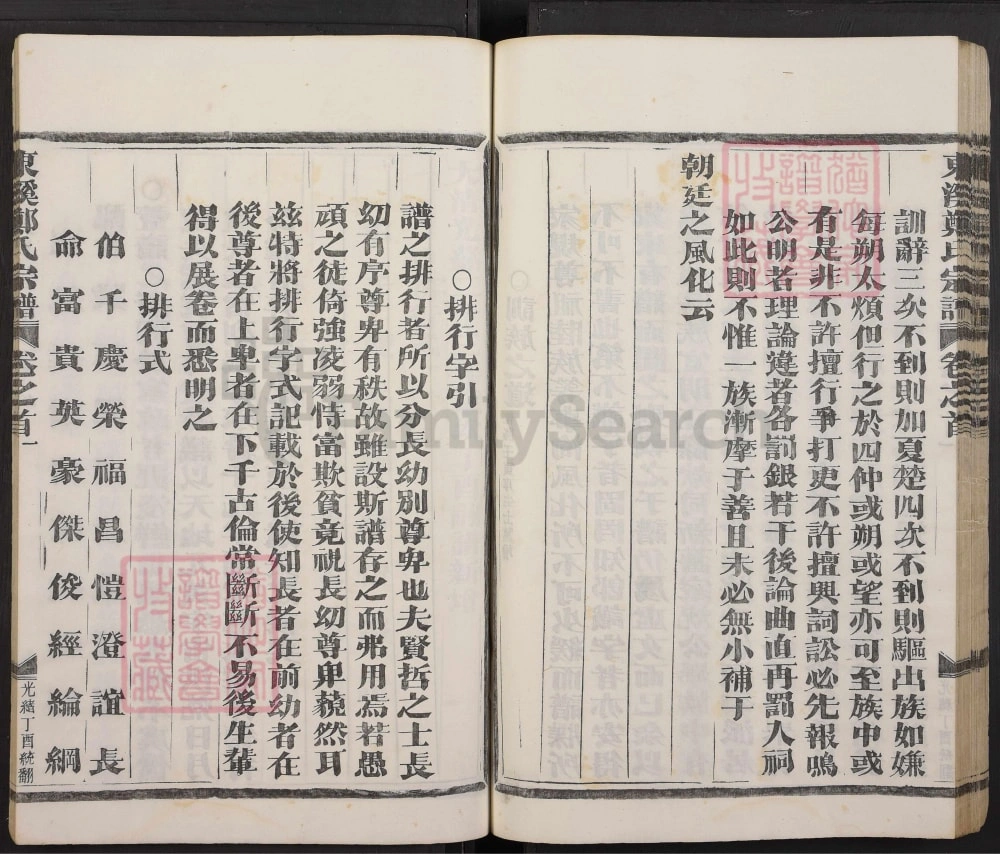 東溪鄭氏宗譜 卷之首
訓辭三次不到則加夏楚四次不到則驅出族如嫌
每朔太煩但行之於四仲或朔或望亦可至族中或
有是非不許擅行爭打更不許擅興詞訟必先報鳴
公明者理論違者各罰銀若干後論曲直再罰入祠
如此則不惟一族漸摩于善且未必無小補于
朝廷之風化云
〇排行字引
譜之排行者所以分長幼別尊卑也夫賢哲之士長
幼有序尊卑有秩故雖設斯譜存之而弗用焉若愚
頑之徒倚強凌弱恃富欺貧竟視長幼尊卑藐然耳
茲特將排行字式記載於後使知長者在前幼者在
後尊者在上卑者在下千古倫常斷斷不易後生輩
得以展卷而悉明之
〇排行式
伯千慶榮福昌愷澄誼長
命富貴英豪傑俊經綸綱
東溪鄭氏宗譜 卷之首一
光緒丁酉統翻
FamilySearch